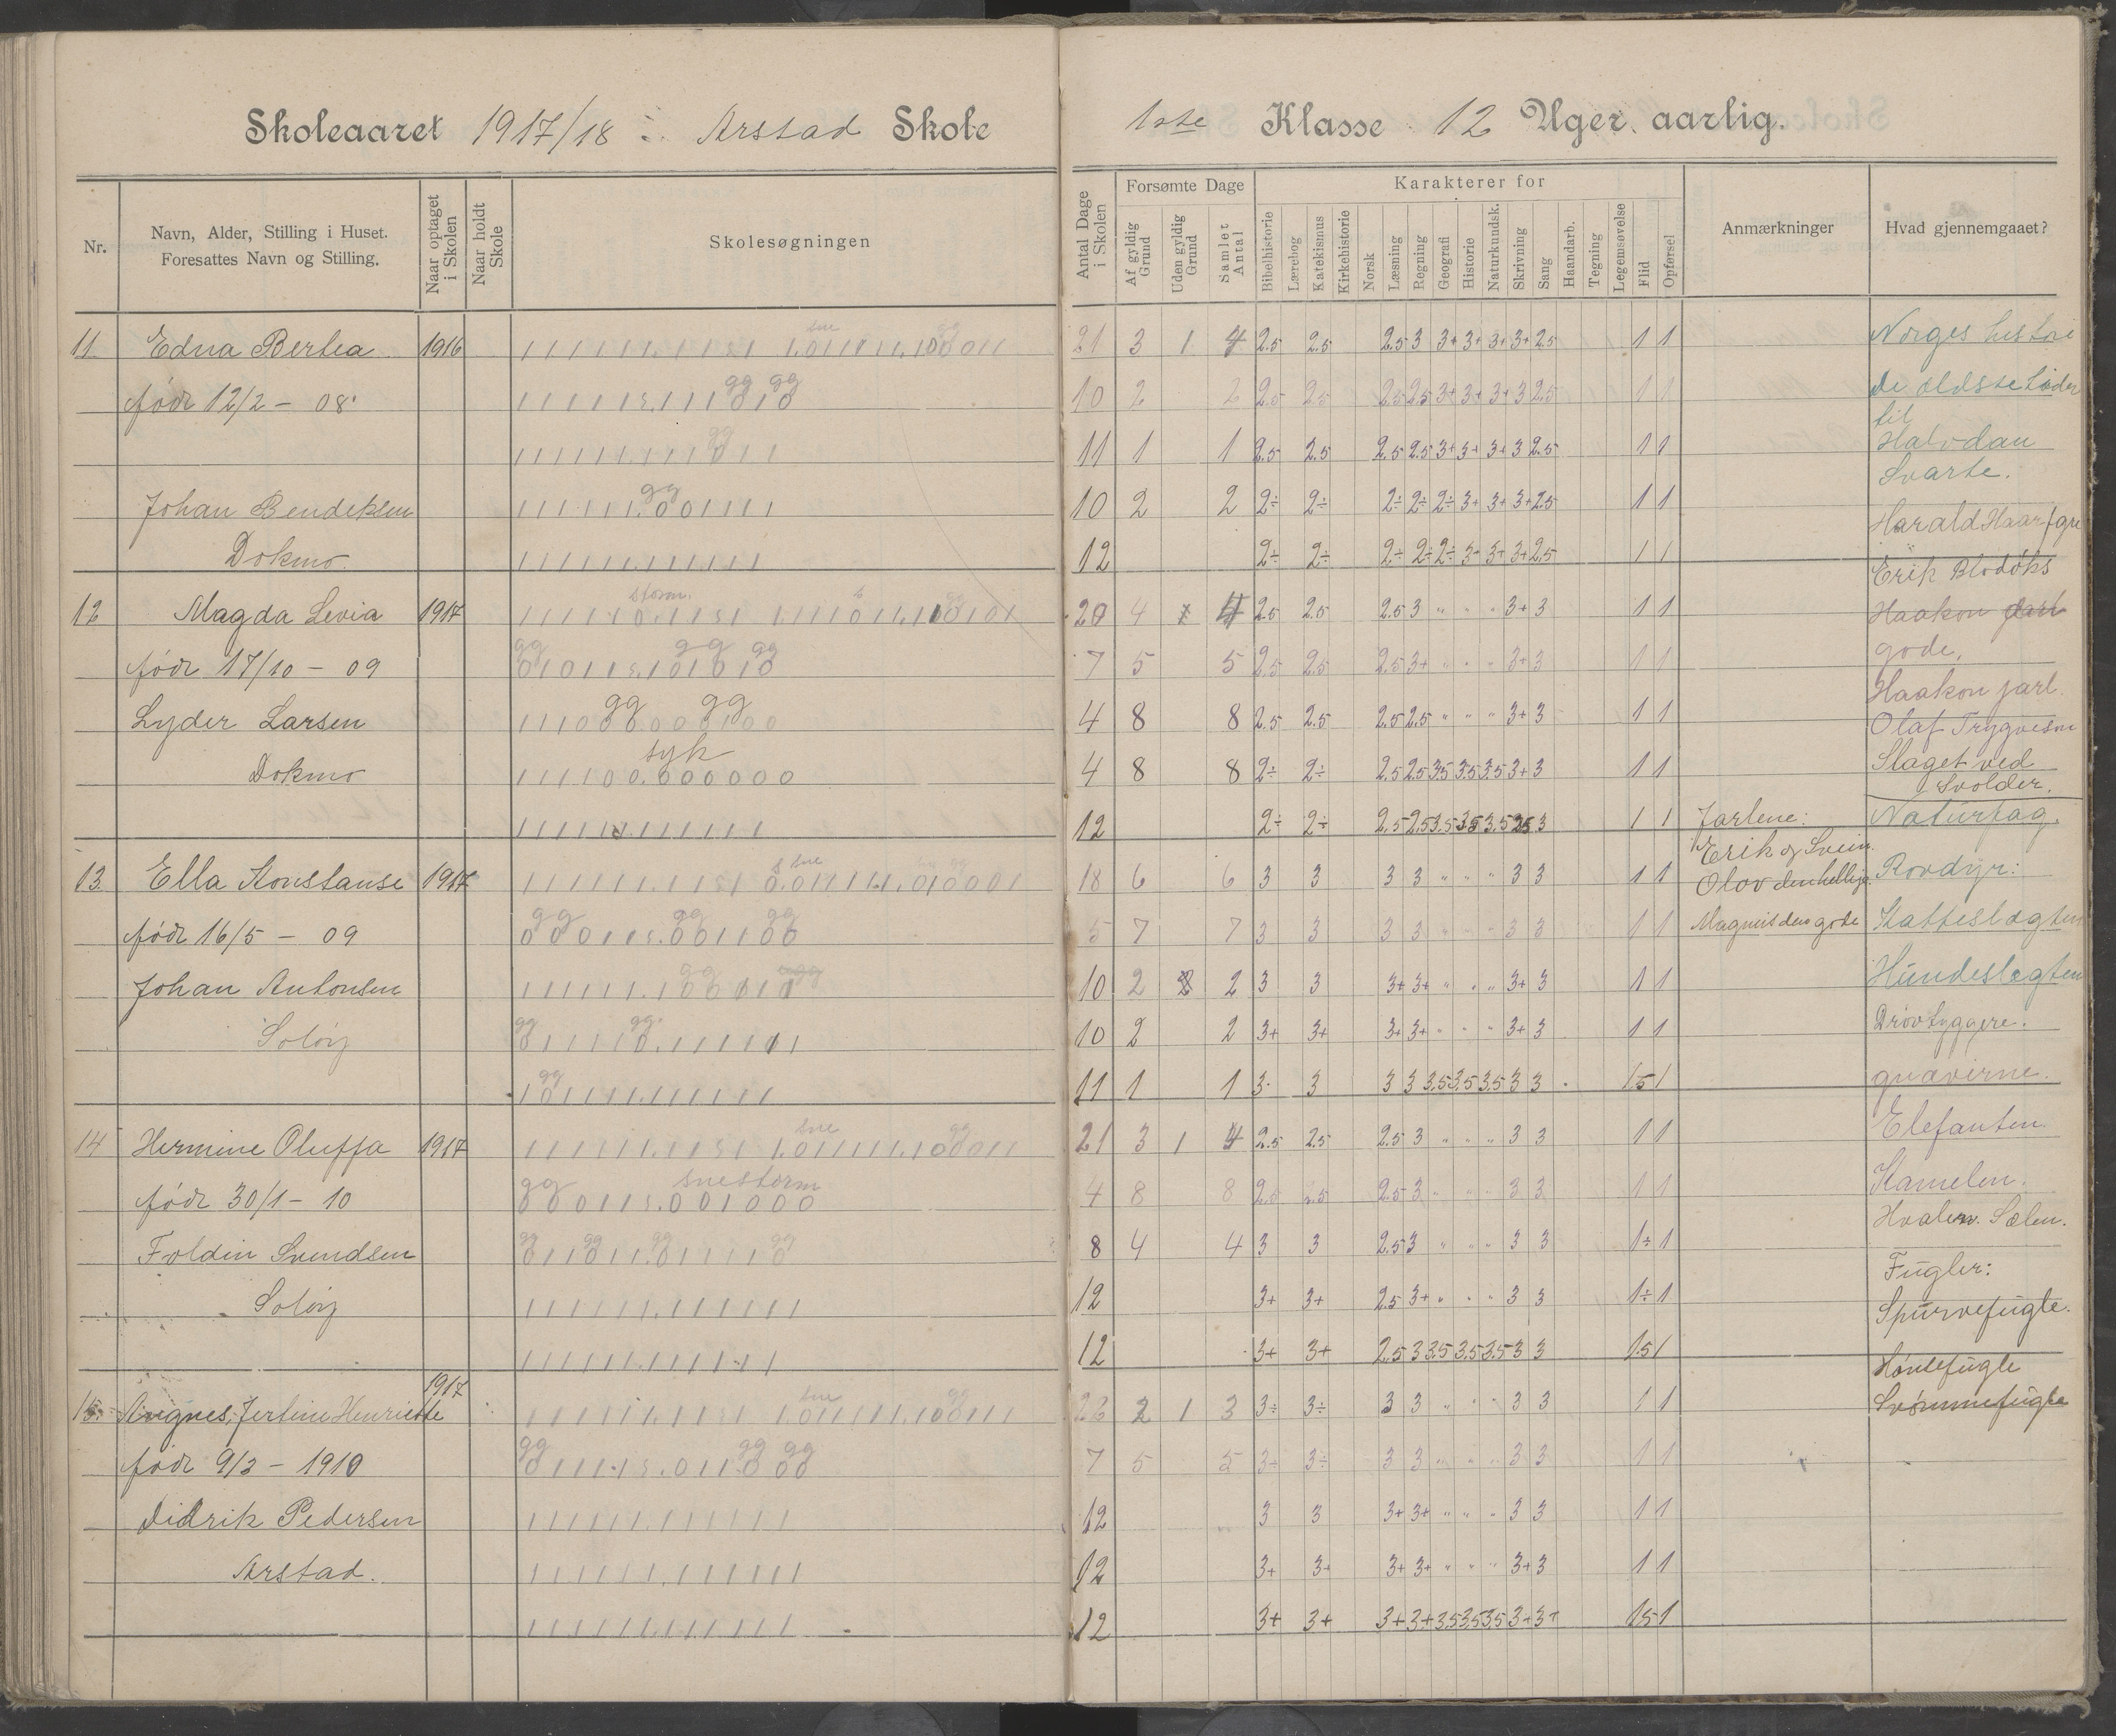 Skoleaaret 1917/18 : Arstad Skole
1ste Klasse 12 Uger aarlig.
Nr.
Navn, Alder, Stilling i Huset.
Foresattes Navn og Stilling.
Naar optaget i Skolen
Naar holdt Skole
Skolesøgningen
Antal Dage i Skolen
Forsømte Dage
Af gyldig Grund
Uden gyldig Grund
Samlet Antal
Karakterer for
Bibelhistorie
Lærebog
Katekismus
Kirkehistorie
Norsk
Læsning
Regning
Geografi
Historie
Naturkundsk.
Skrivning
Sang
Haandarb.
Tegning
Legemsøvelse
Flid
Opførsel
Anmærkninger
Hvad gjennemgaaet?
11 Edna Bertea 1916
21 3 1 4 2.5 2.5 2.5 3 3+ 3+ 3+ 3+ 2.5 1 1
født 12/2 - 08
10 2 2 2.5 2.5 2.5 2.5 3+ 3+ 3+ 3 2.5 1 1
11 1 1 2.5 2.5 2.5 2.5 3+ 3+ 3+ 3 2.5 1 1
Johan Bendiksen
10 2 2 2÷ 2÷ 2÷ 2÷ 2÷ 3+ 3+ 3+ 2.5 1 1
Dokmo
12 2÷ 2÷ 2÷ 2÷ 2÷ 3+ 3+ 3+ 2.5 1 1
12 Magda Levia 1917
storm
20 4 4 2.5 2.5 2.5 3 " " " 3+ 3 1 1
født 17/10 - 09
7 5 5 2.5 2.5 2.5 3+ " " " 3+ 3 1 1
Lyder Larsen
4 8 8 2.5 2.5 2.5 2.5 " " " 3+ 3 1 1
syk
Dokmo
4 8 8 2÷ 2÷ 2.5 2.5 3.5 3.5 3.5 3+ 3 1 1
12 2÷ 2÷ 2.5 2.5 3.5 3.5 3.5 2.5 3 1 1
13 Ella Konstanse 1917
18 6 6 3 3 3 3 " " " 3 3 1 1
født 16/5 - 09
5 7 7 3 3 3 3 " " " 3 3 1 1
Johan Antonsen
10 2 2 3 3 3+ 3+ " " " 3+ 3 1 1
Soløy
10 2 2 3+ 3+ 3+ 3+ " " " 3+ 3 1 1
11 1 1 3 3 3 3 3.5 3.5 3.5 3 3 1.5 1
14 Hermine Oluffa 1917
21 3 1 4 2.5 2.5 2.5 3 " " " 3 3 1 1
snestorm
født 30/1 - 10
4 8 8 2.5 2.5 2.5 3 " " " 3 3 1 1
Foldin Svendsen
8 4 4 3 3 2.5 3 " " " 3 3 1÷ 1
Soløy
12 3+ 3+ 2.5 3+ " " " 3 3 1÷ 1
12 3+ 3+ 2.5 3 3.5 3.5 3.5 3 3 1.5 1
1917
15 Angnes, Jertine Henriette
22 2 1 3 3÷ 3÷ 3 3 " " " 3 3 1 1
født 9/3 - 1910
7 5 5 3÷ 3÷ 3 3 " " " 3 3 1 1
Didrik Pedersen
12 3 3 3+ 3+ " " " 3 3 1 1
Arstad.
12 3+ 3+ 3+ 3+ " " " 3+ 3 1 1
12 3+ 3+ 3+ 3+ 3.5 3.5 3.5 3+ 3+ 1.5 1
Jarlene:
Erik og Svein.
Olov den hellige
Magnus den gode
Norges histori
De ældste tider
til
Halvdan
Svarte.
Harald Haarfgre
Erik Blodøks
Haakon jarl
gode.
Haakon jarl.
Olaf Trygveson
Slaget ved
Svolder.
Naturfag.
Rovdyr:
Katteslægten
Hundeslægten
Drøvtyggere.
gnaverne.
Elefanten.
Kamelen.
Hvalen. Sælen.
Fugler:
Spurvefugle.
Hønsefugle
Svømmefugle